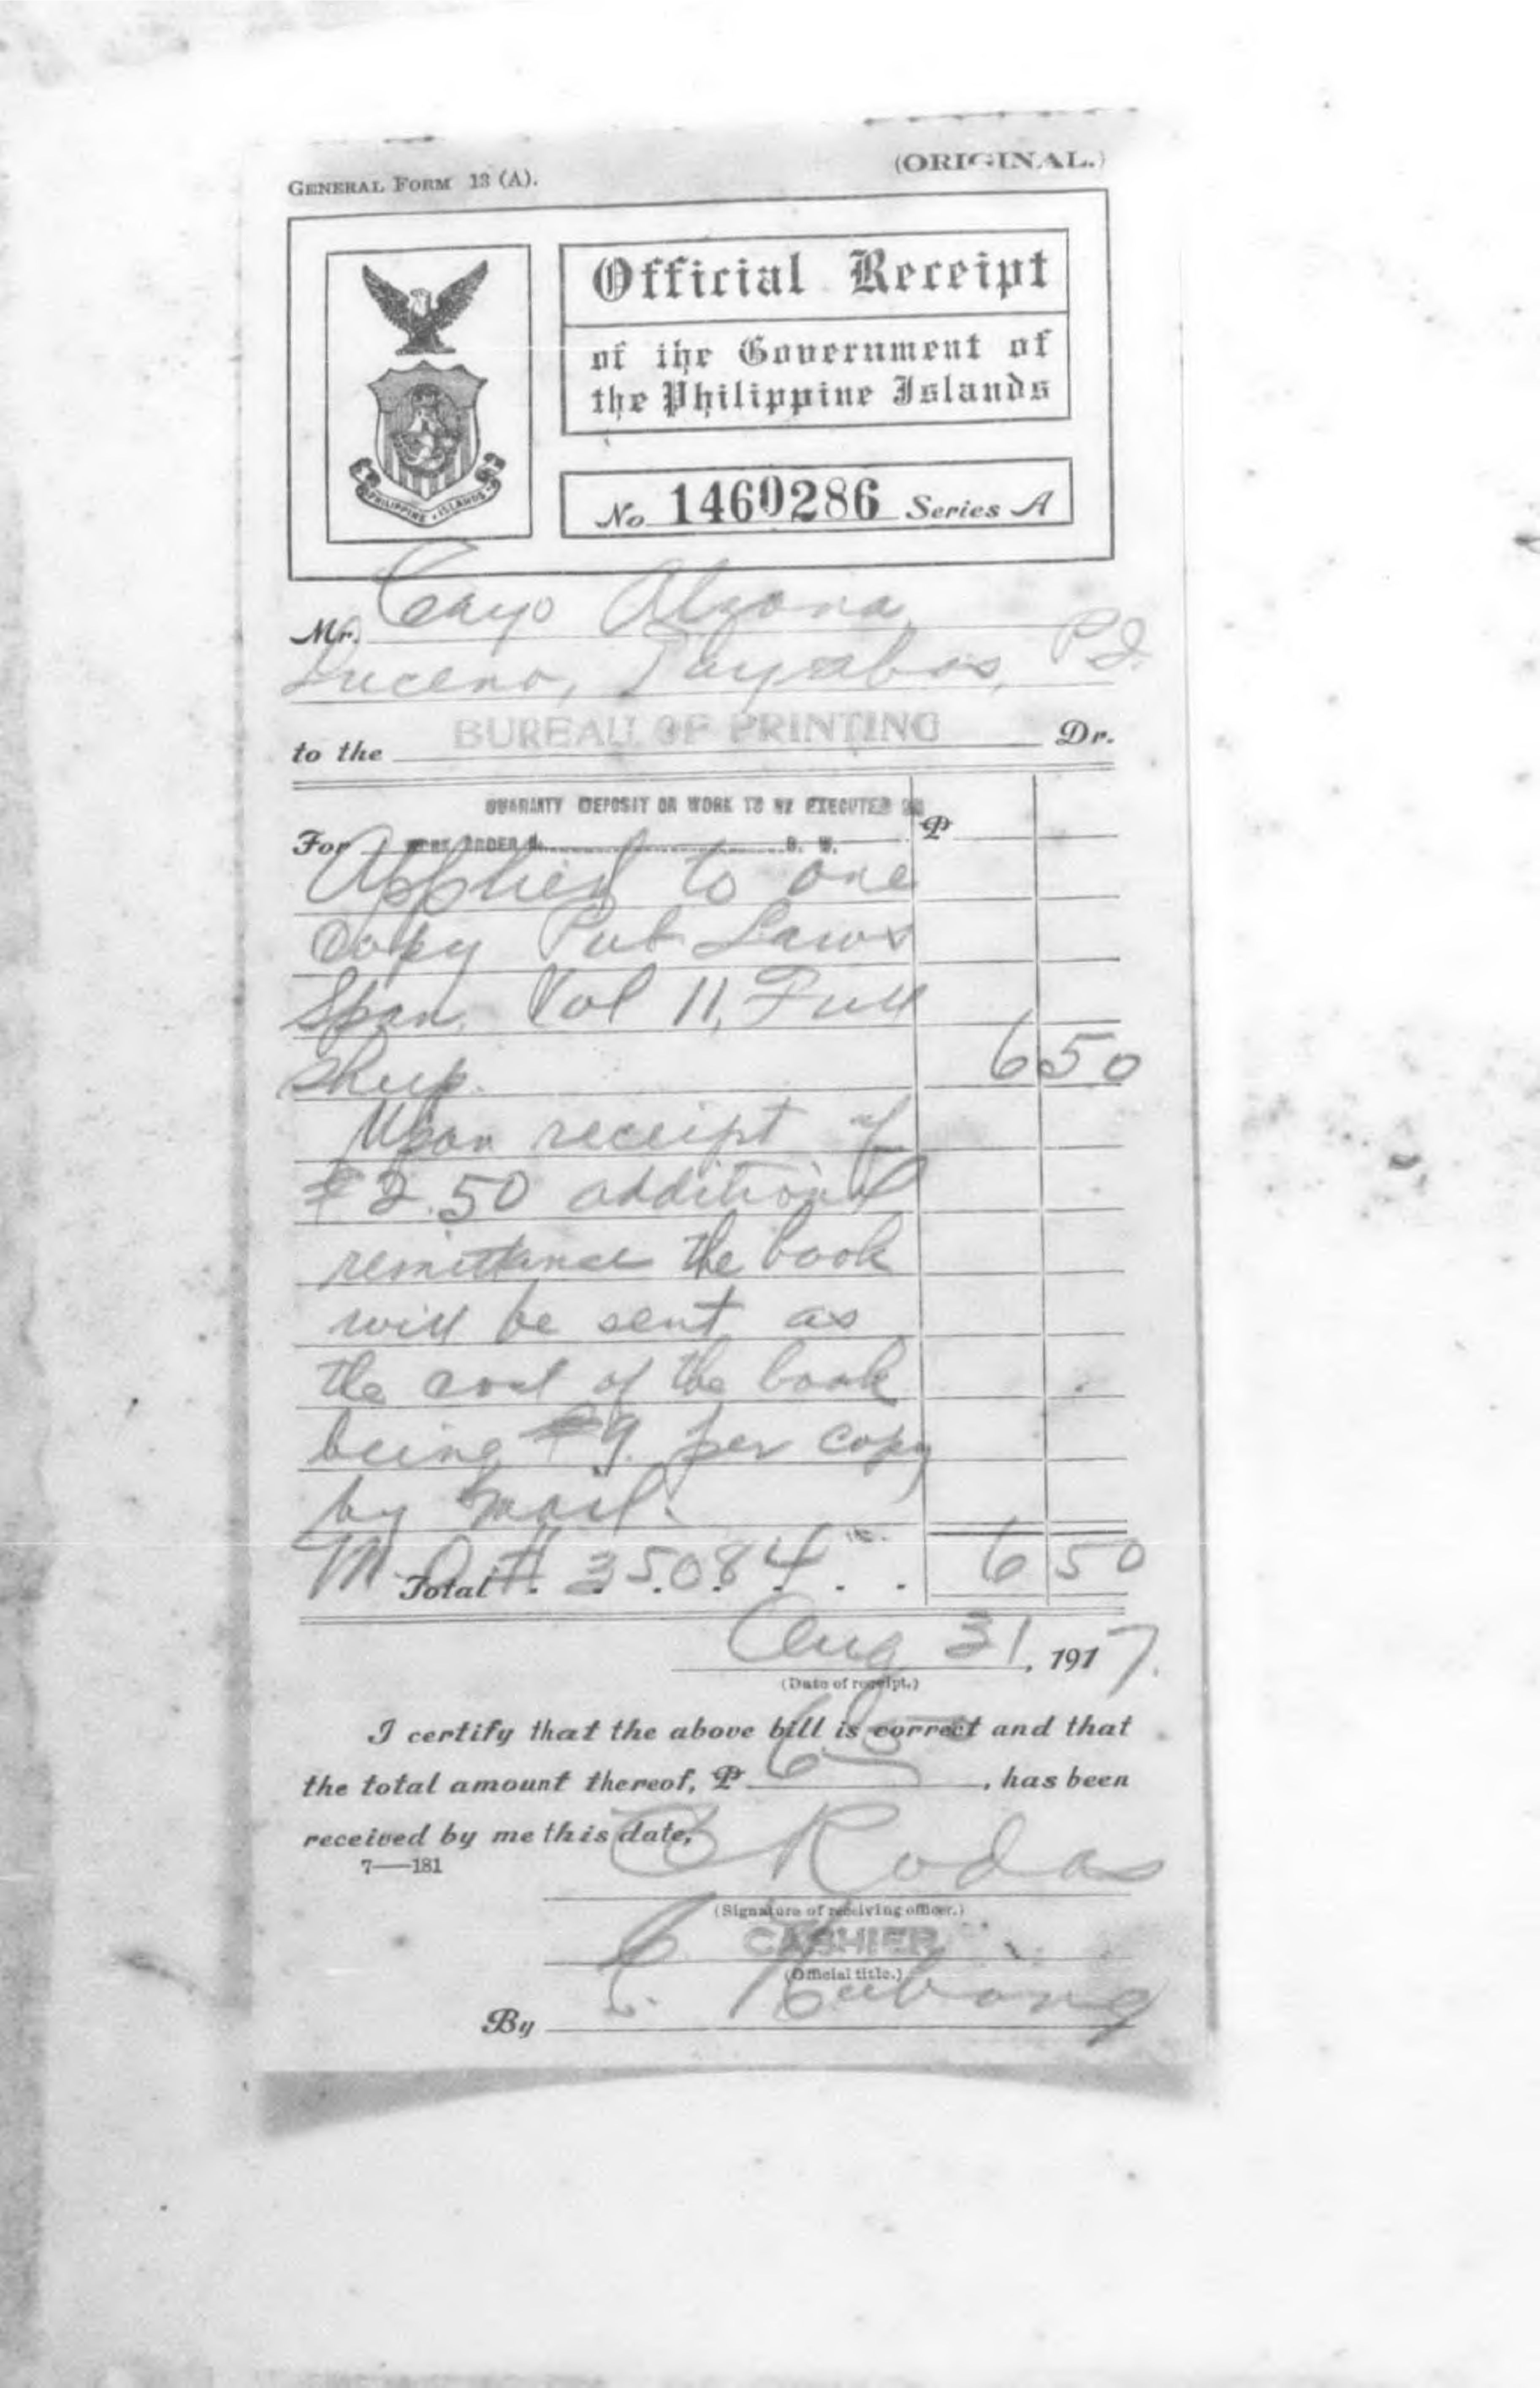 GENERAL FORM 13 (A).
(ORIGINAL.)
Official Receipt
of the Government of
the Philippine Islands
PHILIPPINE ISLANDS
No. 1460286 Series A
Mr. Cayo Alzona
Lucena, Tayabas, P.I.
to the BUREAU OF PRINTING Dr.
GUARANTY DEPOSIT ON WORK TO BE EXECUTED
For WORK ORDER B. W. ₱
Applied to one
copy Pub Laws
Span. Vol 11, Full
Sheep. 6 50
Upon receipt of
₱2.50 additional
remittance the book
will be sent as
the cost of the book
being ₱9. per copy
by mail.
M.O. #35084
Total . . . . . . 6 50
Aug 31, 1917.
(Date of receipt.)
I certify that the above bill is correct and that
the total amount thereof, ₱ 6 50, has been
received by me this date,
7—181
Rodas
(Signature of receiving officer.)
CASHIER
(Official title.)
By